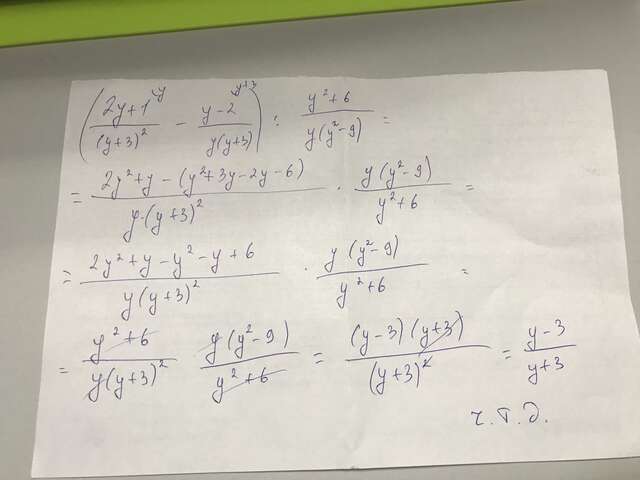 ( (2y+1)/(y+3)² ^y − (y−2)/(y(y+3)) ^y+3 ) : (y²+6)/(y(y²−9)) =
= (2y²+y−(y²+3y−2y−6))/(y·(y+3)²) · (y(y²−9))/(y²+6) =
= (2y²+y−y²−y+6)/(y(y+3)²) · (y(y²−9))/(y²+6) =
= (y²+6)/(y(y+3)²) (y(y²−9))/(y²+6) = ((y−3)(y+3))/(y+3)² = (y−3)/(y+3)
ч.т.д.